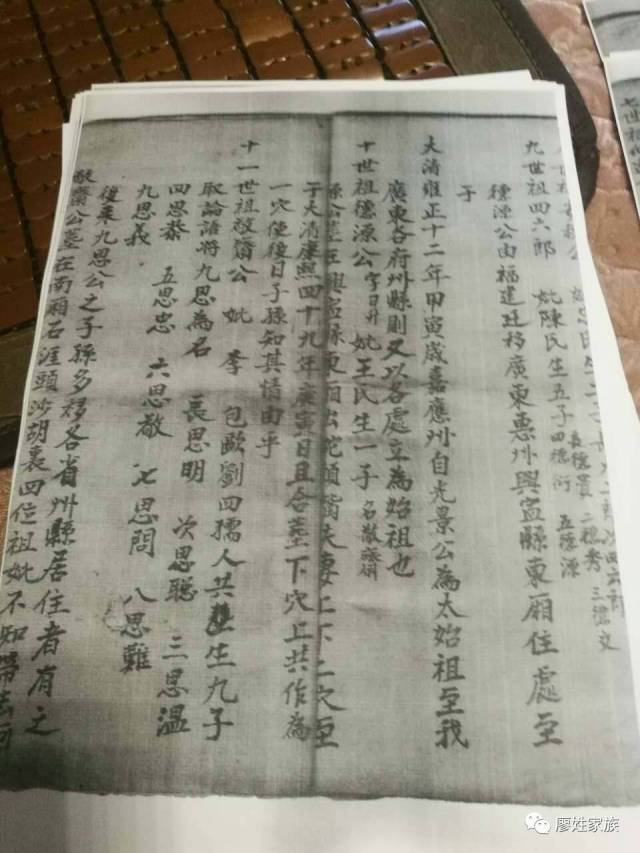 九世祖四六郎 妣陳氏生五子 長德貴 二德秀 三德文 四德衍 五德源
德源公由福建迁移廣東惠州興寧縣東厢住處至
子
大清雍正十二年甲寅歲嘉應州自光景公為太始祖至我
廣東各府州縣則又以各處立為始祖也
十世祖德源公 字日升 妣王氏生一子 名敬齋
源公葬在興寧縣東厢公蛇頭嘴夫妻上下二穴至
于大清康熙四十九年庚寅日且合葬下穴上共作為
一穴使後日子孫知其情由乎
十一世祖敬齋公 妣 李 包歐劉四孺人共生九子
取論語將九思為名 長思明 次思聪 三思溫
四思恭 五思忠 六思敬 七思問 八思難
九思義
後来九思公之子孫多移各省州縣居住者有之
敬齋公墓在南厢石涯頭沙胡裏四位祖妣不知
廖姓家族